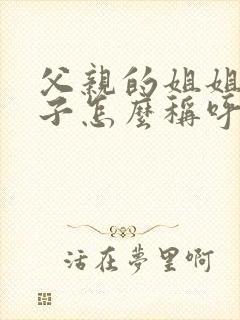 父親的姐姐
子怎麼稱呼
活在夢里啊